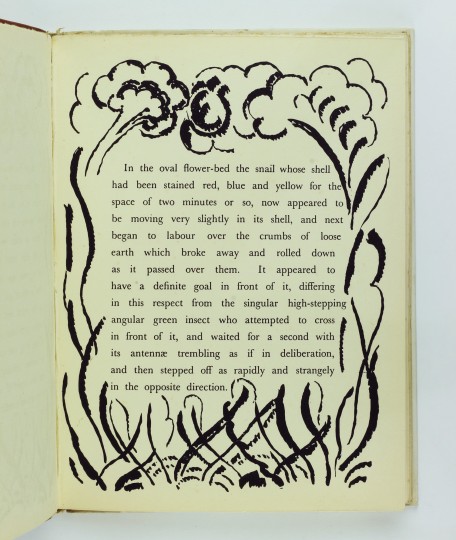 In the oval flower-bed the snail whose shell
had been stained red, blue and yellow for the
space of two minutes or so, now appeared to
be moving very slightly in its shell, and next
began to labour over the crumbs of loose
earth which broke away and rolled down
as it passed over them. It appeared to
have a definite goal in front of it, differing
in this respect from the singular high-stepping
angular green insect who attempted to cross
in front of it, and waited for a second with
its antennæ trembling as if in deliberation,
and then stepped off as rapidly and strangely
in the opposite direction.